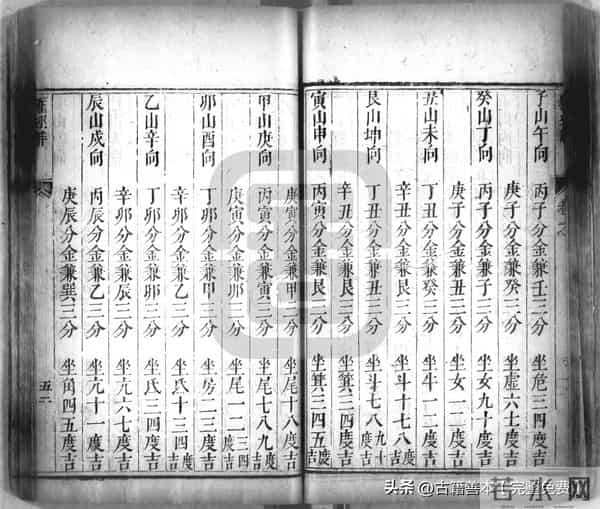 子山午向 丙子分金兼壬三分 坐危三四度吉
庚子分金兼癸三分 坐虛六七度吉
癸山丁向 丙子分金兼子三分 坐女九十度吉
庚子分金兼丑三分 坐女一二度吉
丑山未向 丁丑分金兼癸三分 坐牛一二度吉
辛丑分金兼艮三分 坐斗十七八度吉
艮山坤向 丁丑分金兼丑三分 坐斗七八九十度吉
辛丑分金兼艮三分 坐箕三四度吉
寅山申向 丙寅分金兼艮三分 坐箕三四五度吉
庚寅分金兼甲三分 坐尾十八度吉
甲山庚向 丙寅分金兼寅三分 坐尾七八九度吉
庚寅分金兼卯三分 坐尾一二三四度吉
卯山酉向 丁卯分金兼甲三分 坐房二三度吉
辛卯分金兼乙三分 坐氐十三四度吉
乙山辛向 丁卯分金兼卯三分 坐氐三四度吉
辛卯分金兼辰三分 坐亢六七度吉
辰山戌向 丙辰分金兼乙三分 坐亢十一度吉
庚辰分金兼巽三分 坐角四五度吉
五二
头条 @古籍善本王完整免费